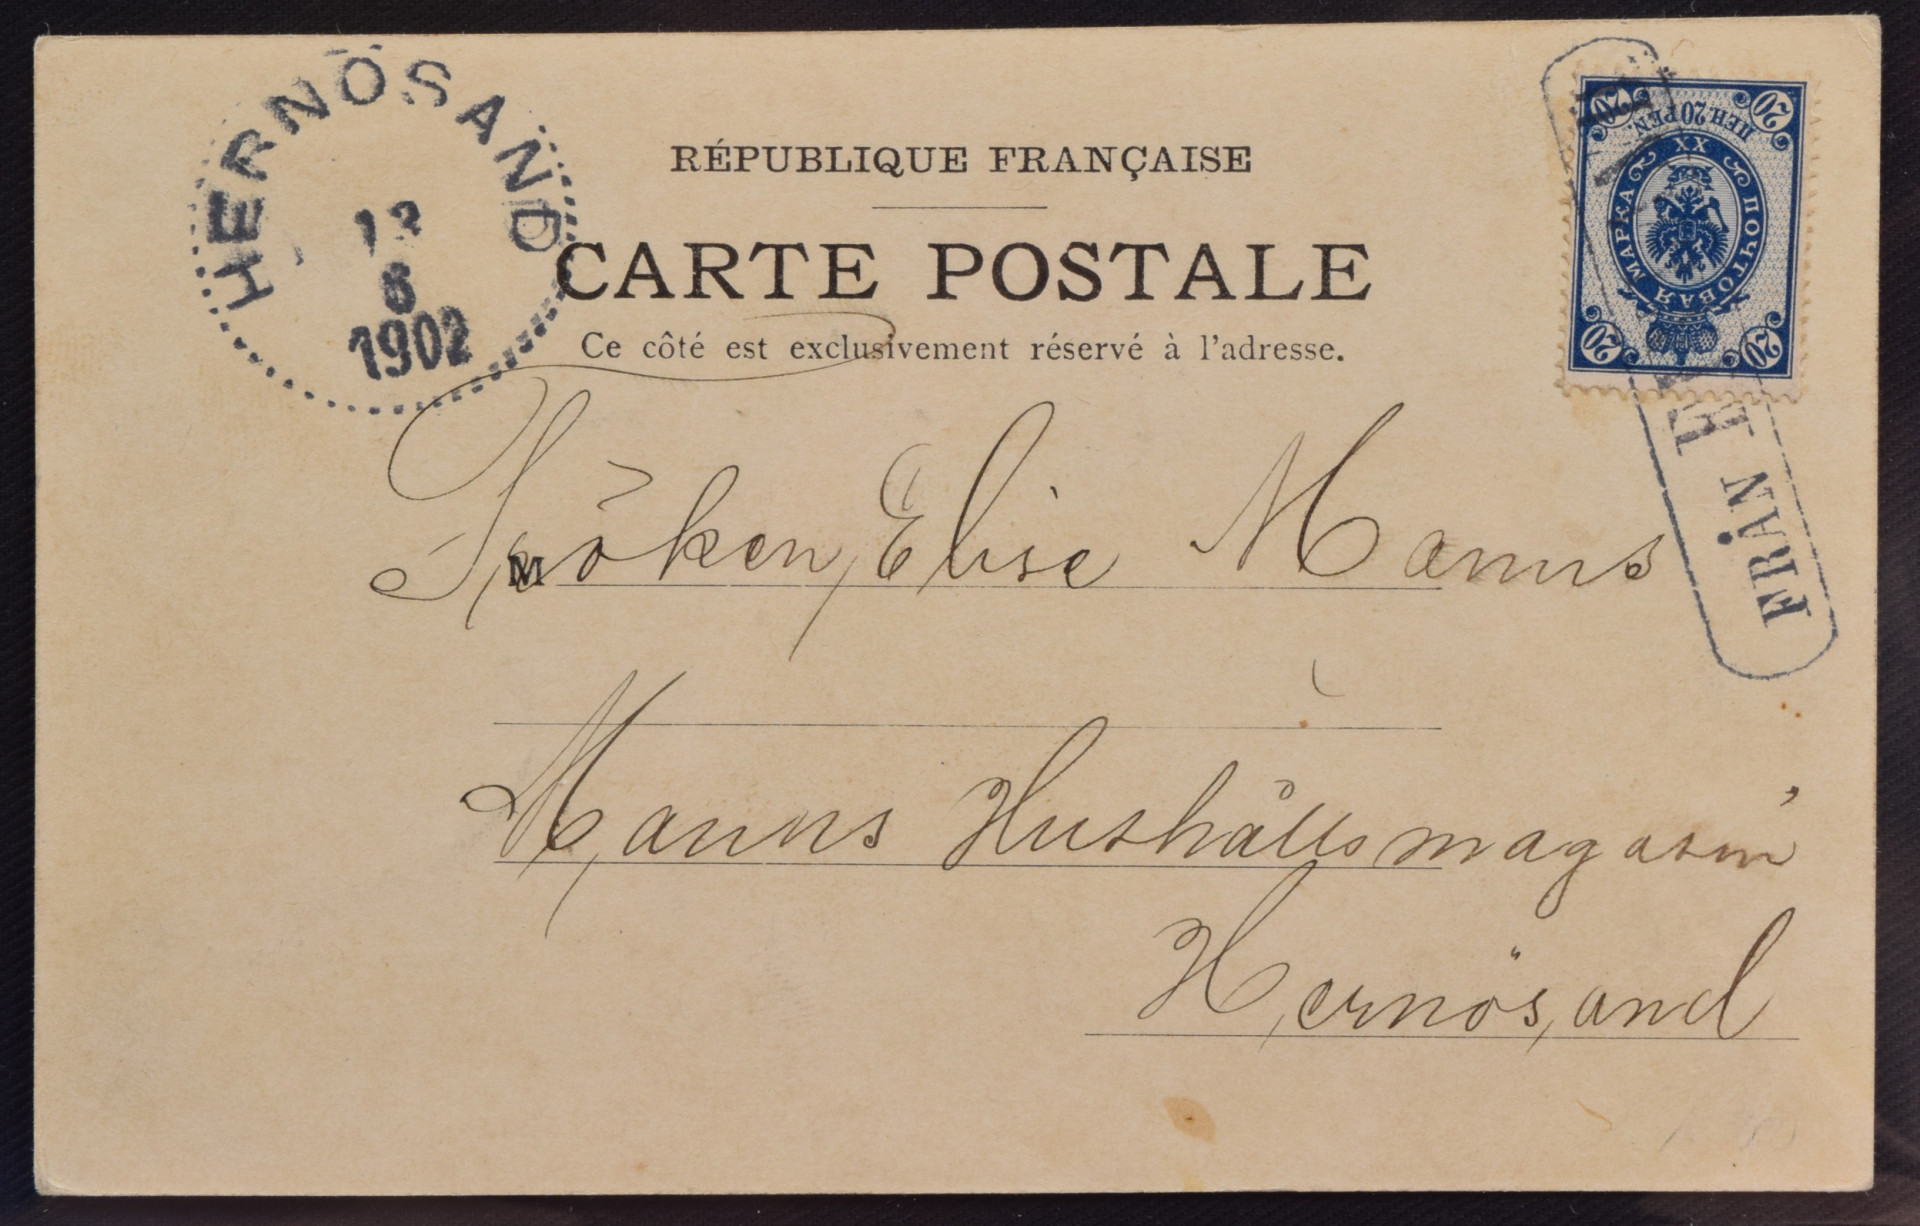 HERNÖSAND
13
6
1902
RÉPUBLIQUE FRANÇAISE
CARTE POSTALE
Ce côté est exclusivement réservé à l'adresse.
20 20
ПЕН. 20 PEN.
XX
ПОЧТОВАЯ МАРКА
20 20
FRÅN F
M
Fröken Elise Manns
Manns Hushållsmagasin
Hernösand